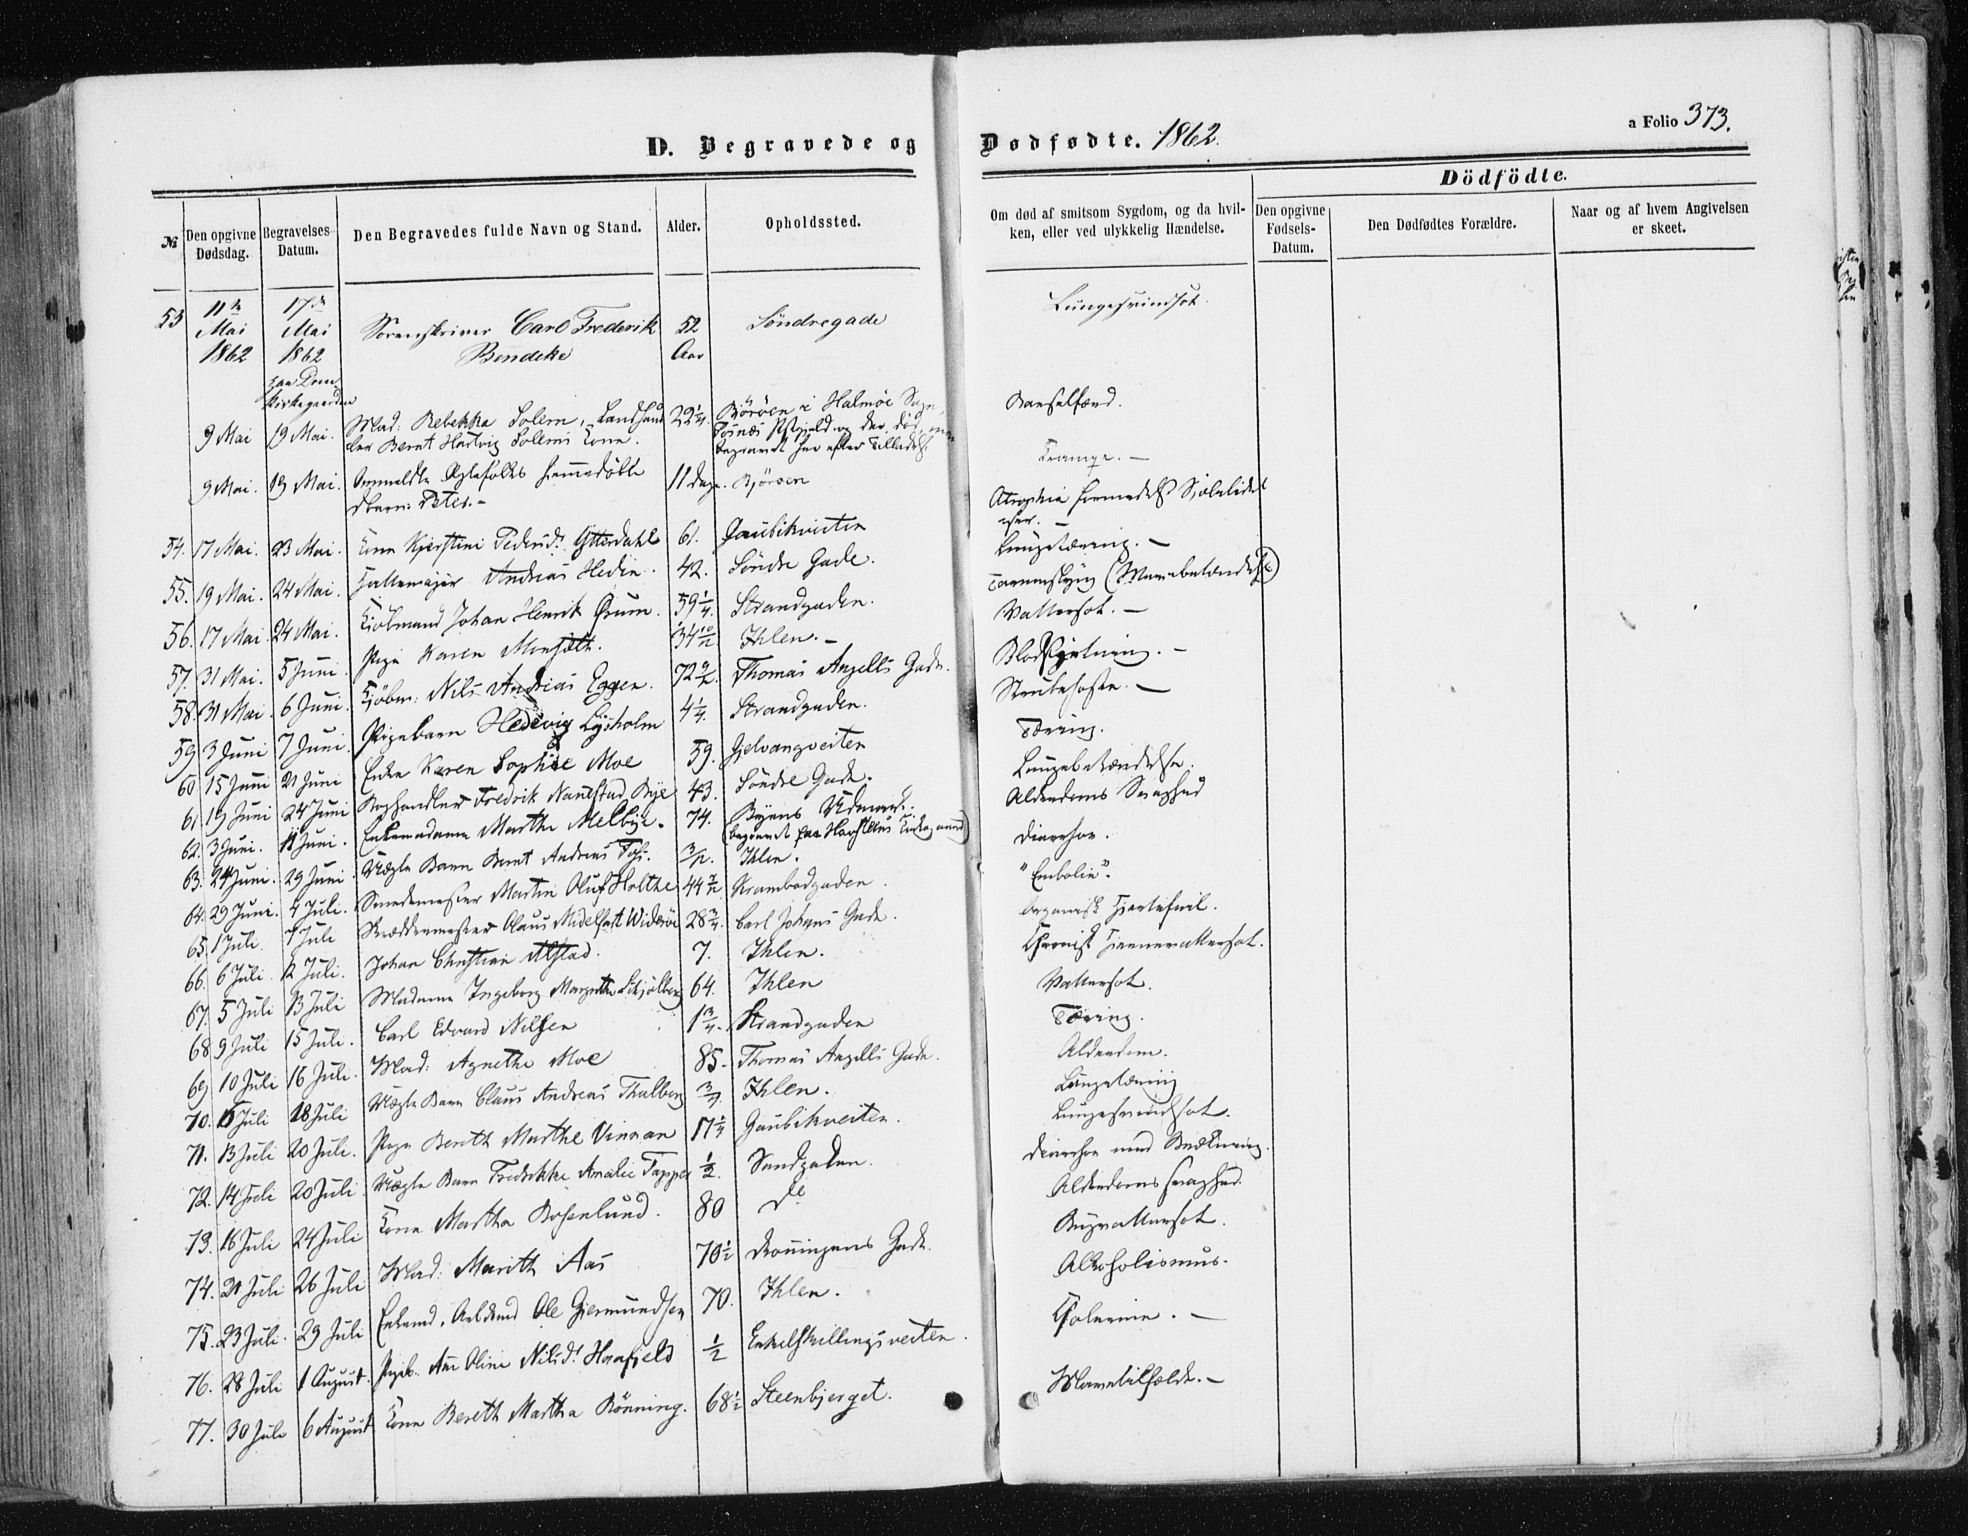 D. Begravede og Dødfødte. 1862.
a Folio 373.
Dödfödte.
№
Den opgivne Dødsdag.
Begravelses-Datum.
Den Begravedes fulde Navn og Stand.
Alder.
Opholdssted.
Om død af smitsom Sygdom, og da hvil-
ken, eller ved ulykkelig Hændelse.
Den opgivne Fødsels-Datum.
Den Dødfødtes Forældre.
Naar og af hvem Angivelsen er skeet.
53 11te Mai 1862 17de Mai 1862 Sorenskriver Carl Frederik Bendeke 52 Aar Söndregade Lungesvindsot.
paa Dom-
kirkegaarden
9 Mai 19 Mai. Mad: Rebekka Solem, Landhand 29 1/4. Björöen i Halmöe Sogn, Barselfærd.
ler Bernt Hartvig Solems Kone. begravet her efter Tilladelse
9 Mai. 19 Mai. Anmeldte Ægtefolks hjemmedöbte 11 Dage. Björöen Krampe. —
Peter. —
54. 17 Mai. 23 Mai. Kone Kjerstine Pedersd. Ytterdahl 61. Gaubikveiten Atrophia
55. 19 Mai. 24 Mai. Andreas Hedin. 42. Söndre Gade. Lungetæring. —
56. 17 Mai. 24 Mai. Kjöbmand Johan Henrik Örum. 59 1/4. Strandgaden.
57. 31 Mai. 5 Juni. Pige Karen 34 10/12 Ihlen. — Vattersot. —
58. 31 Mai. 6 Juni. Kjöbm: Nils Andreas Eggen. 72 Thomas Angells Gade. Blodstyrtning. —
59 3 Juni 7 Juni. Pigebarn Hedevig Lysholm 4 1/4. Strandgaden. Strubehoste. —
60 15 Juni 21 Juni Enke Karen Sophie Moe 59. Gjelvangveiten Tæring.
61. 19 Juni 24 Juni Boghandler Fredrik Nannestad Bye 43. Söndre Gade. Lungebetændelse.
62. 3 Juni. 11 Juni. Enkemadame Marthe Melbye. 74. Byens Udmark. Alderdoms Svaghed
(begravet paa Havsteens Kirkegaard)
63. 24 Juni. 29 Juni Uægte Barn Bernt Andreas Ihlen. Diarrhoe.
64. 29 Juni. 4 Juli. Smedemester Martin Oluf Holthe 44 Krambodgaden. "Embolie".
65. 1 Juli. 7 Juli Skræddermester Olaus Midelfart Wideröe 28 3/4. Carl Johans Gade. Organisk Hjertefeil.
66. 6 Juli. 12 Juli. Johan Christian Alstad. 7. Ihlen. Chronisk Hjernevattersot.
67. 5 Juli 13 Juli Madame Ingeborg Margrethe Schjölberg 64. Ihlen Vattersot.
68. 9 Juli 15 Juli. Carl Edvard Nilsen 1 3/4. Strandgaden Tæring.
69. 10 Juli 16 Juli. Mad: Agnethe Moe 85. Thomas Angells Gade. Alderdom.
70. 15 Juli 18 Juli Uægte Barn Claus Andreas Thalberg Ihlen. Lungetæring
71. 13 Juli 20 Juli. Pige Bereth Marthe Vinnan 17 1/4 Gaubikveiten. Lungesvindsot.
72. 14 Juli 20 Juli Uægte Barn Fredrikke Amalie Tapper 1/2. Sandgaden. Diarrhoe med Brækning.
73. 16 Juli 24 Juli Kone Martha Rosenlund. 80 do Alderdomssvaghed.
74. 21 Juli 26 Juli Mad: Marith Aas 70 1/2 Dronningens Gade. Bugvattersot.
75. 23 Juli. 29 Juli Enkemd. Arbdmd Ole Gjermundsen 70. Ihlen. Alkoholismus.
76. 28 Juli 1 August. Pigeb. Ane Oline Nilsd. Haafjeld 1/2 Enkelskillingsveiten. Cholerine. —
77. 30 Juli 6 August Kone Bereth Martha Rönning. 68 1/2 Steenbjerget. Mavetilfælde. —